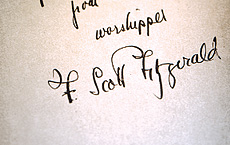 from
worshipper
F. Scott Fitzgerald